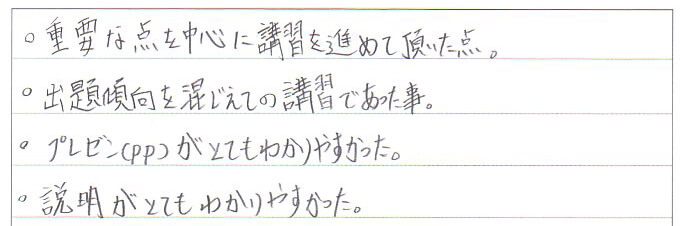 。重要な点を中心に講習を進めて頂いた点。
。出題傾向を混じえての講習であった事。
。プレゼン(PP)がとてもわかりやすかった。
。説明がとてもわかりやすかった。